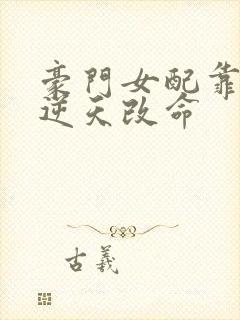 豪門女配靠
逆天改命
古羲